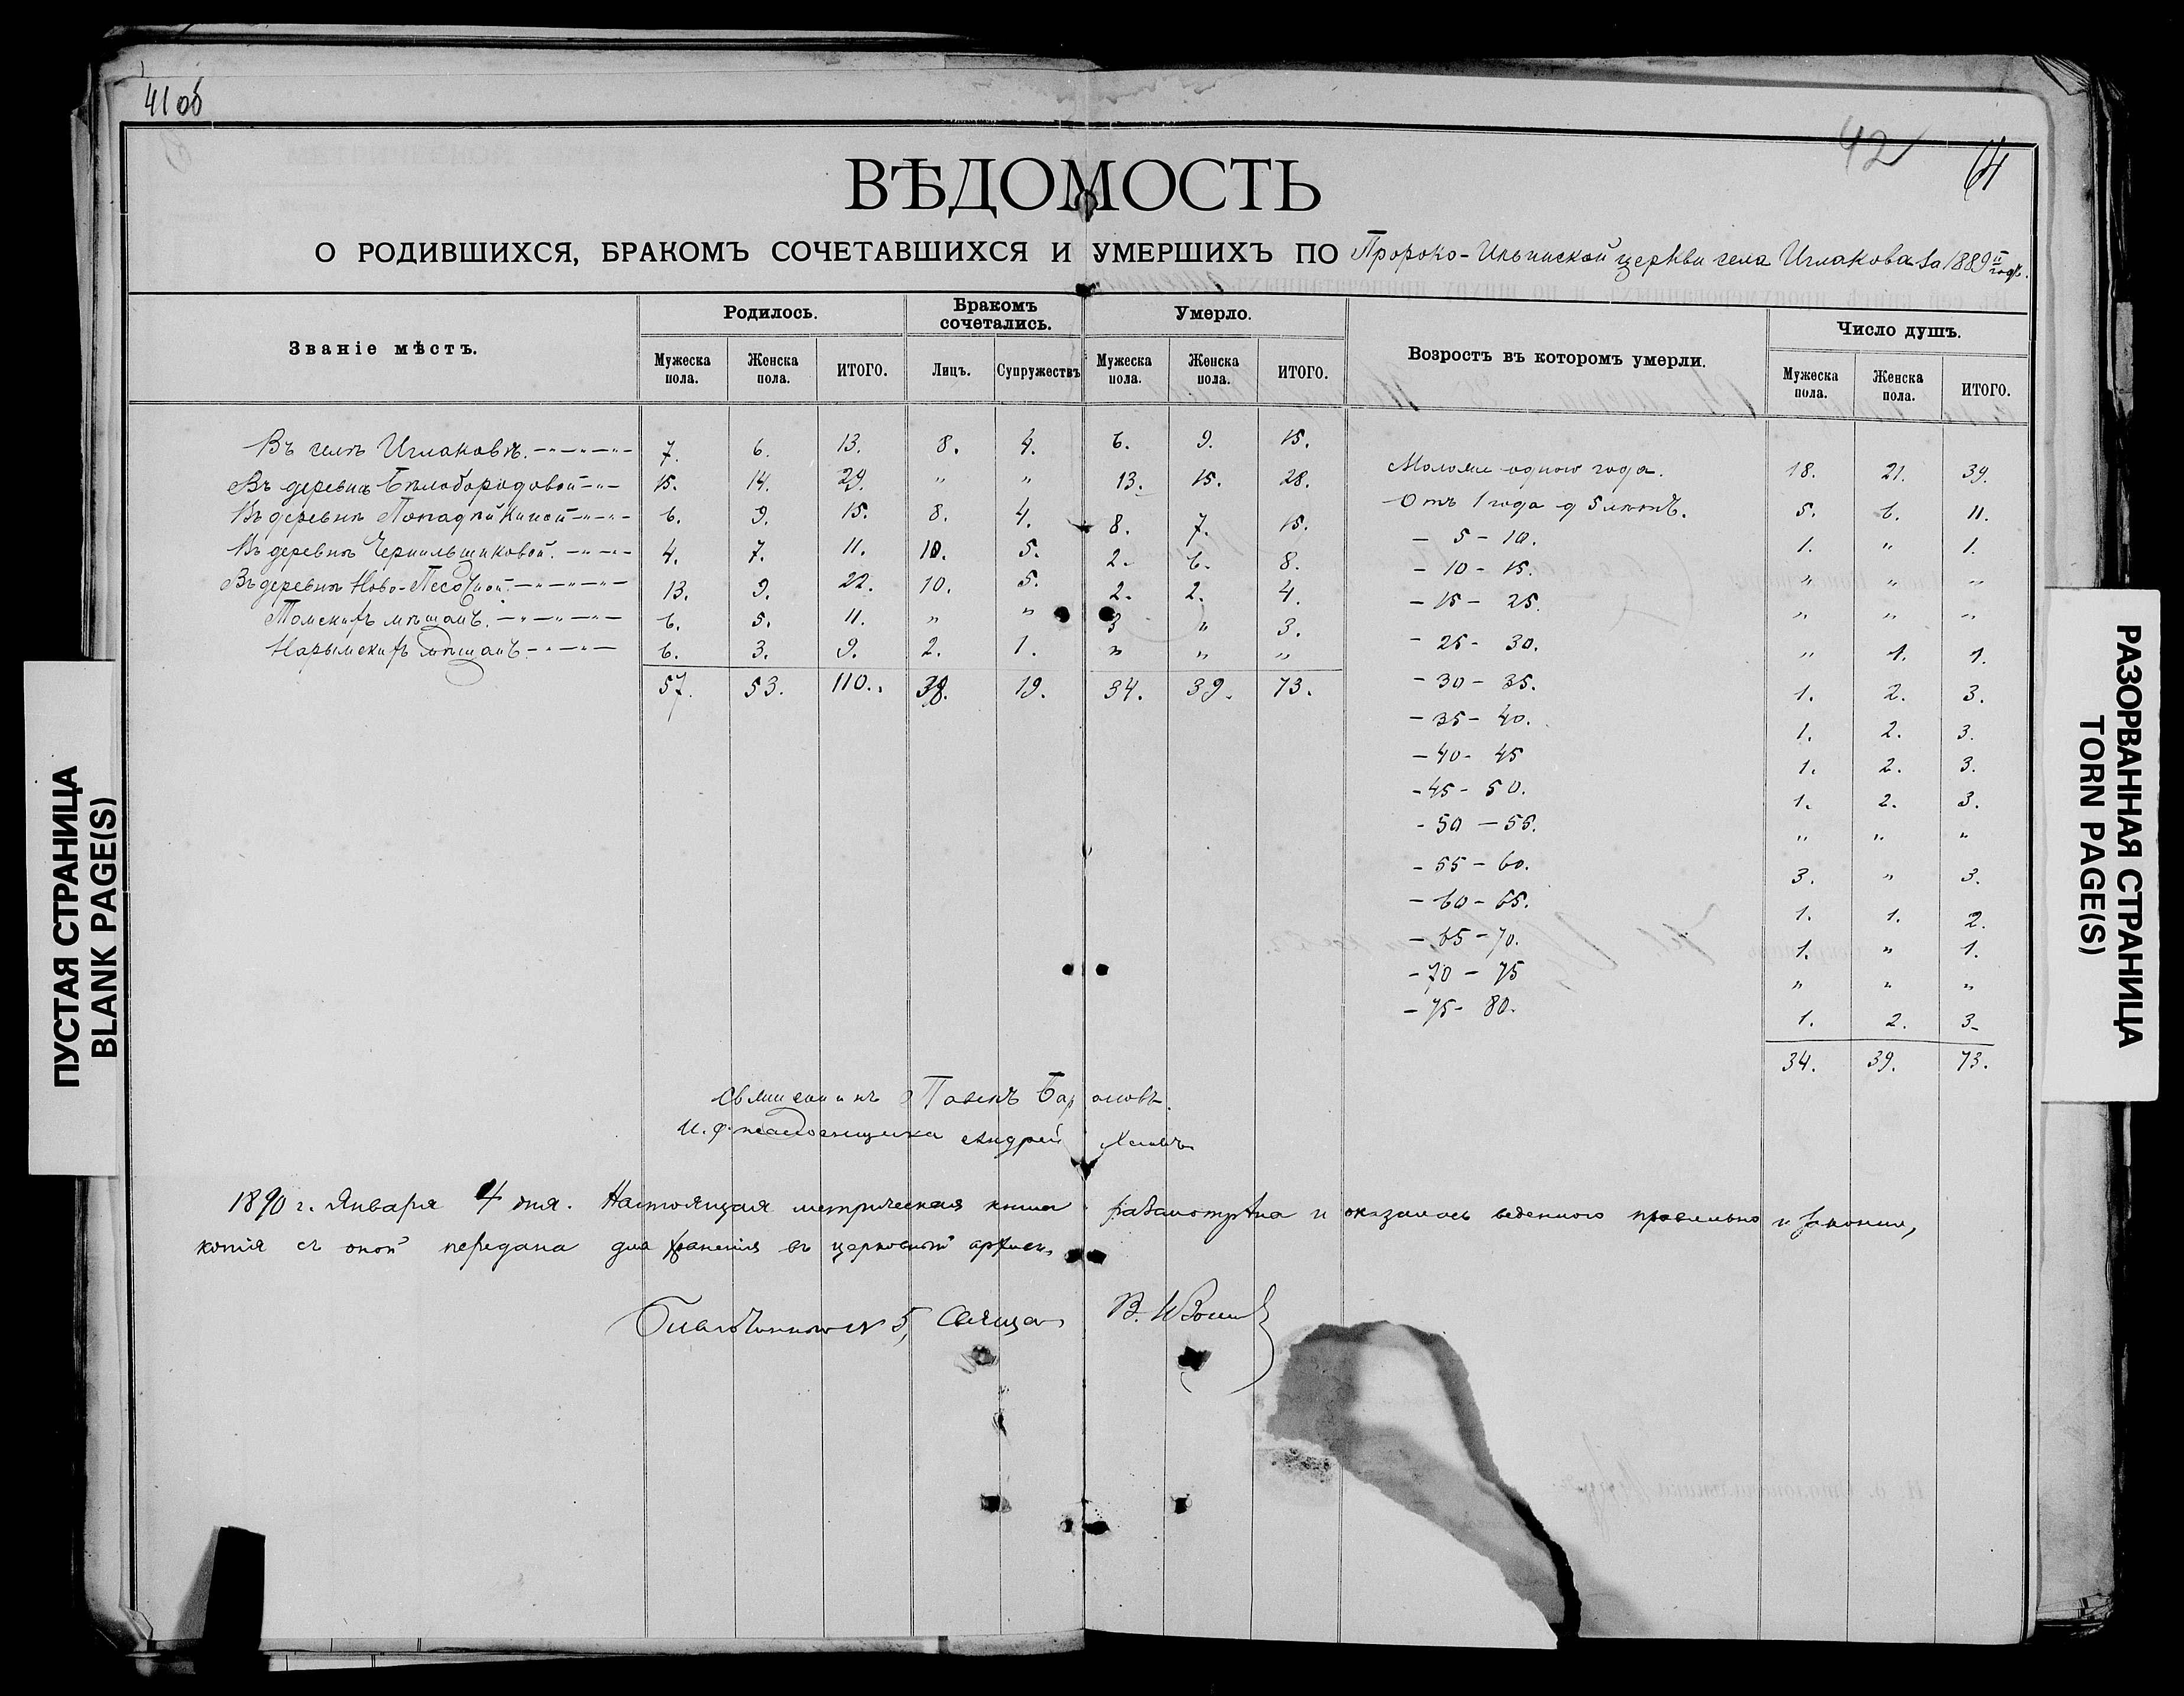 41 об
42
64
ВѢДОМОСТЬ
О РОДИВШИХСЯ, БРАКОМЪ СОЧЕТАВШИХСЯ И УМЕРШИХЪ ПО Пророко-Ильинской церкви села Иглакова за 1889 й годъ.
Званіе мѣстъ. Родилось. Бракомъ сочетались. Умерло. Возростъ въ которомъ умерли. Число душъ.
Мужеска пола. Женска пола. ИТОГО. Лицъ. Супружествъ Мужеска пола. Женска пола. ИТОГО. Мужеска пола. Женска пола. ИТОГО.
Въ селѣ Иглаковѣ. 7. 6. 13. 8. 4. 6. 9. 15.
Въ деревнѣ Бѣлобородовой 15. 14. 29. " " 13. 15. 28.
Въ деревнѣ 6. 9. 15. 8. 4. 8. 7. 15.
Въ деревнѣ Чернильщиковой. 4. 7. 11. 10. 5. 2. 6. 8.
Въ деревнѣ Ново- 13. 9. 22. 10. 5. 2. 2. 4.
Томскихъ мѣщанъ. 6. 5. 11. " " 3 " 3.
Нарымскихъ мѣщанъ 6. 3. 9. 2. 1. " " "
57. 53. 110. 38. 19. 34. 39. 73.
одного года. 18. 21. 39.
Отъ 1 года д 5 лѣтъ. 5. 6. 11.
— 5 - 10. 1. " 1.
— 10 - 15. " " "
— 15 - 25. " " "
- 25 - 30. " 1. 1.
- 30 - 35. 1. 2. 3.
- 35 - 40. 1. 2. 3.
- 40 - 45 1. 2. 3.
- 45 - 50. 1. 2. 3.
- 50 — 55. " " "
- 55 - 60. 3. " 3.
- 60 - 65. 1. 1. 2.
- 65 - 70. 1. " 1.
- 70 - 75 " " "
- 75 - 80. 1. 2. 3
34. 39. 73.
Священникъ
И. д. псаломщика Андрей
1890 г. Января 4 дня. Настоящая метрическая книга разсмотрѣна и оказалась веденною правильно и
копія съ оной передана для храненія въ церковный архивъ
Благочинный №5, Свящ. В.
ПУСТАЯ СТРАНИЦА
BLANK PAGE(S)
РАЗОРВАННАЯ СТРАНИЦА
TORN PAGE(S)